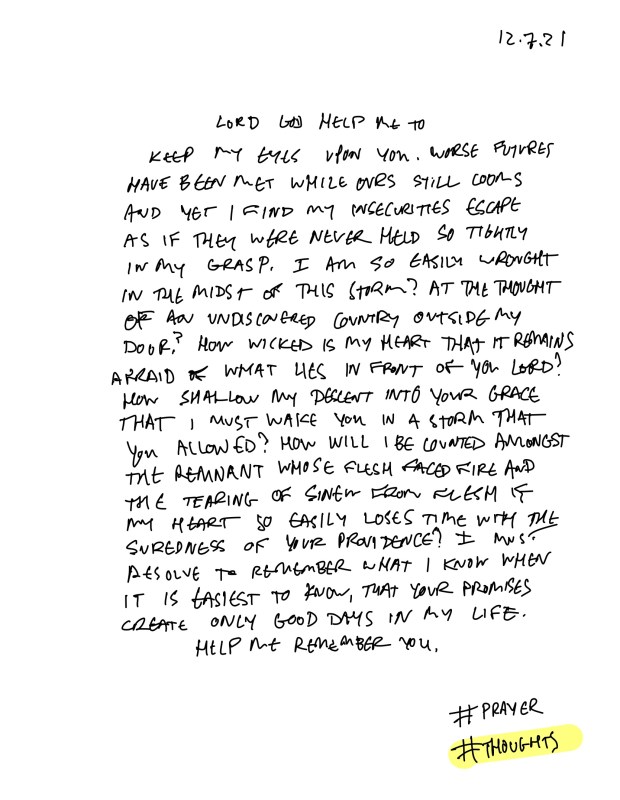 12.7.21
LORD GOD HELP ME TO
KEEP MY EYES UPON YOU. WORSE FUTURES
HAVE BEEN MET WHILE OURS STILL LOOMS
AND YET I FIND MY INSECURITIES ESCAPE
AS IF THEY WERE NEVER HELD SO TIGHTLY
IN MY GRASP. I AM SO EASILY WROUGHT
IN THE MIDST OF THIS STORM? AT THE THOUGHT
OF AN UNDISCOVERED COUNTRY OUTSIDE MY
DOOR? HOW WICKED IS MY HEART THAT IT REMAINS
AFRAID OF WHAT LIES IN FRONT OF YOU LORD?
HOW SHALLOW MY DESCENT INTO YOUR GRACE
THAT I MUST WAKE YOU IN A STORM THAT
YOU ALLOWED? HOW WILL I BE COUNTED AMONGST
THE REMNANT WHOSE FLESH FACED FIRE AND
THE TEARING OF SINEW FROM FLESH IF
MY HEART SO EASILY LOSES TIME WITH THE
SUREDNESS OF YOUR PROVIDENCE? I MUST
RESOLVE TO REMEMBER WHAT I KNOW WHEN
IT IS EASIEST TO KNOW, THAT YOUR PROMISES
CREATE ONLY GOOD DAYS IN MY LIFE.
HELP ME REMEMBER YOU.
#PRAYER
#THOUGHTS